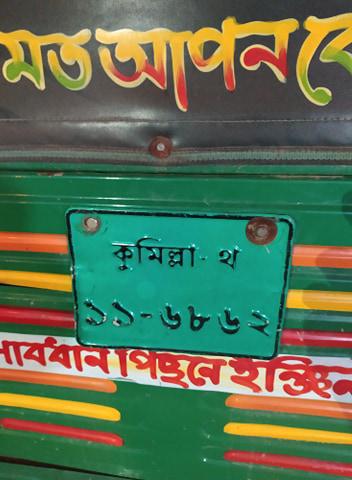 মত আপন কে
কুমিল্লা- থ
১১-৬৮৬২
সাবধান পিছনে ইঞ্জিন